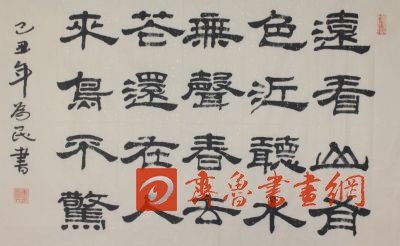 遠看山有
色近聽水
無聲春去
花還在人
來鳥不驚
己丑年為民書
齊魯書畫網